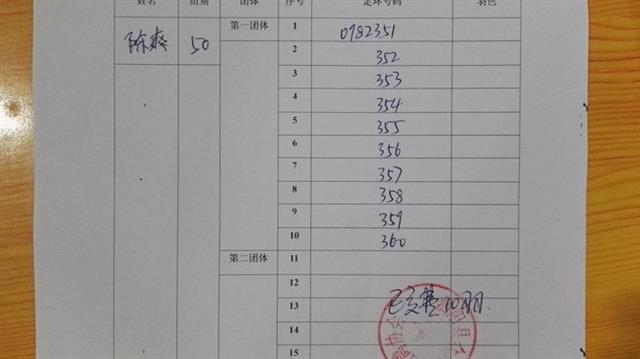 姓名 组别 团体 序号 足环号码 羽色
陈爽 50 第一团体 1 0982351
2 352
3 353
4 354
5 355
6 356
7 357
8 358
9 359
10 360
第二团体 11
12
13 10羽
14
15